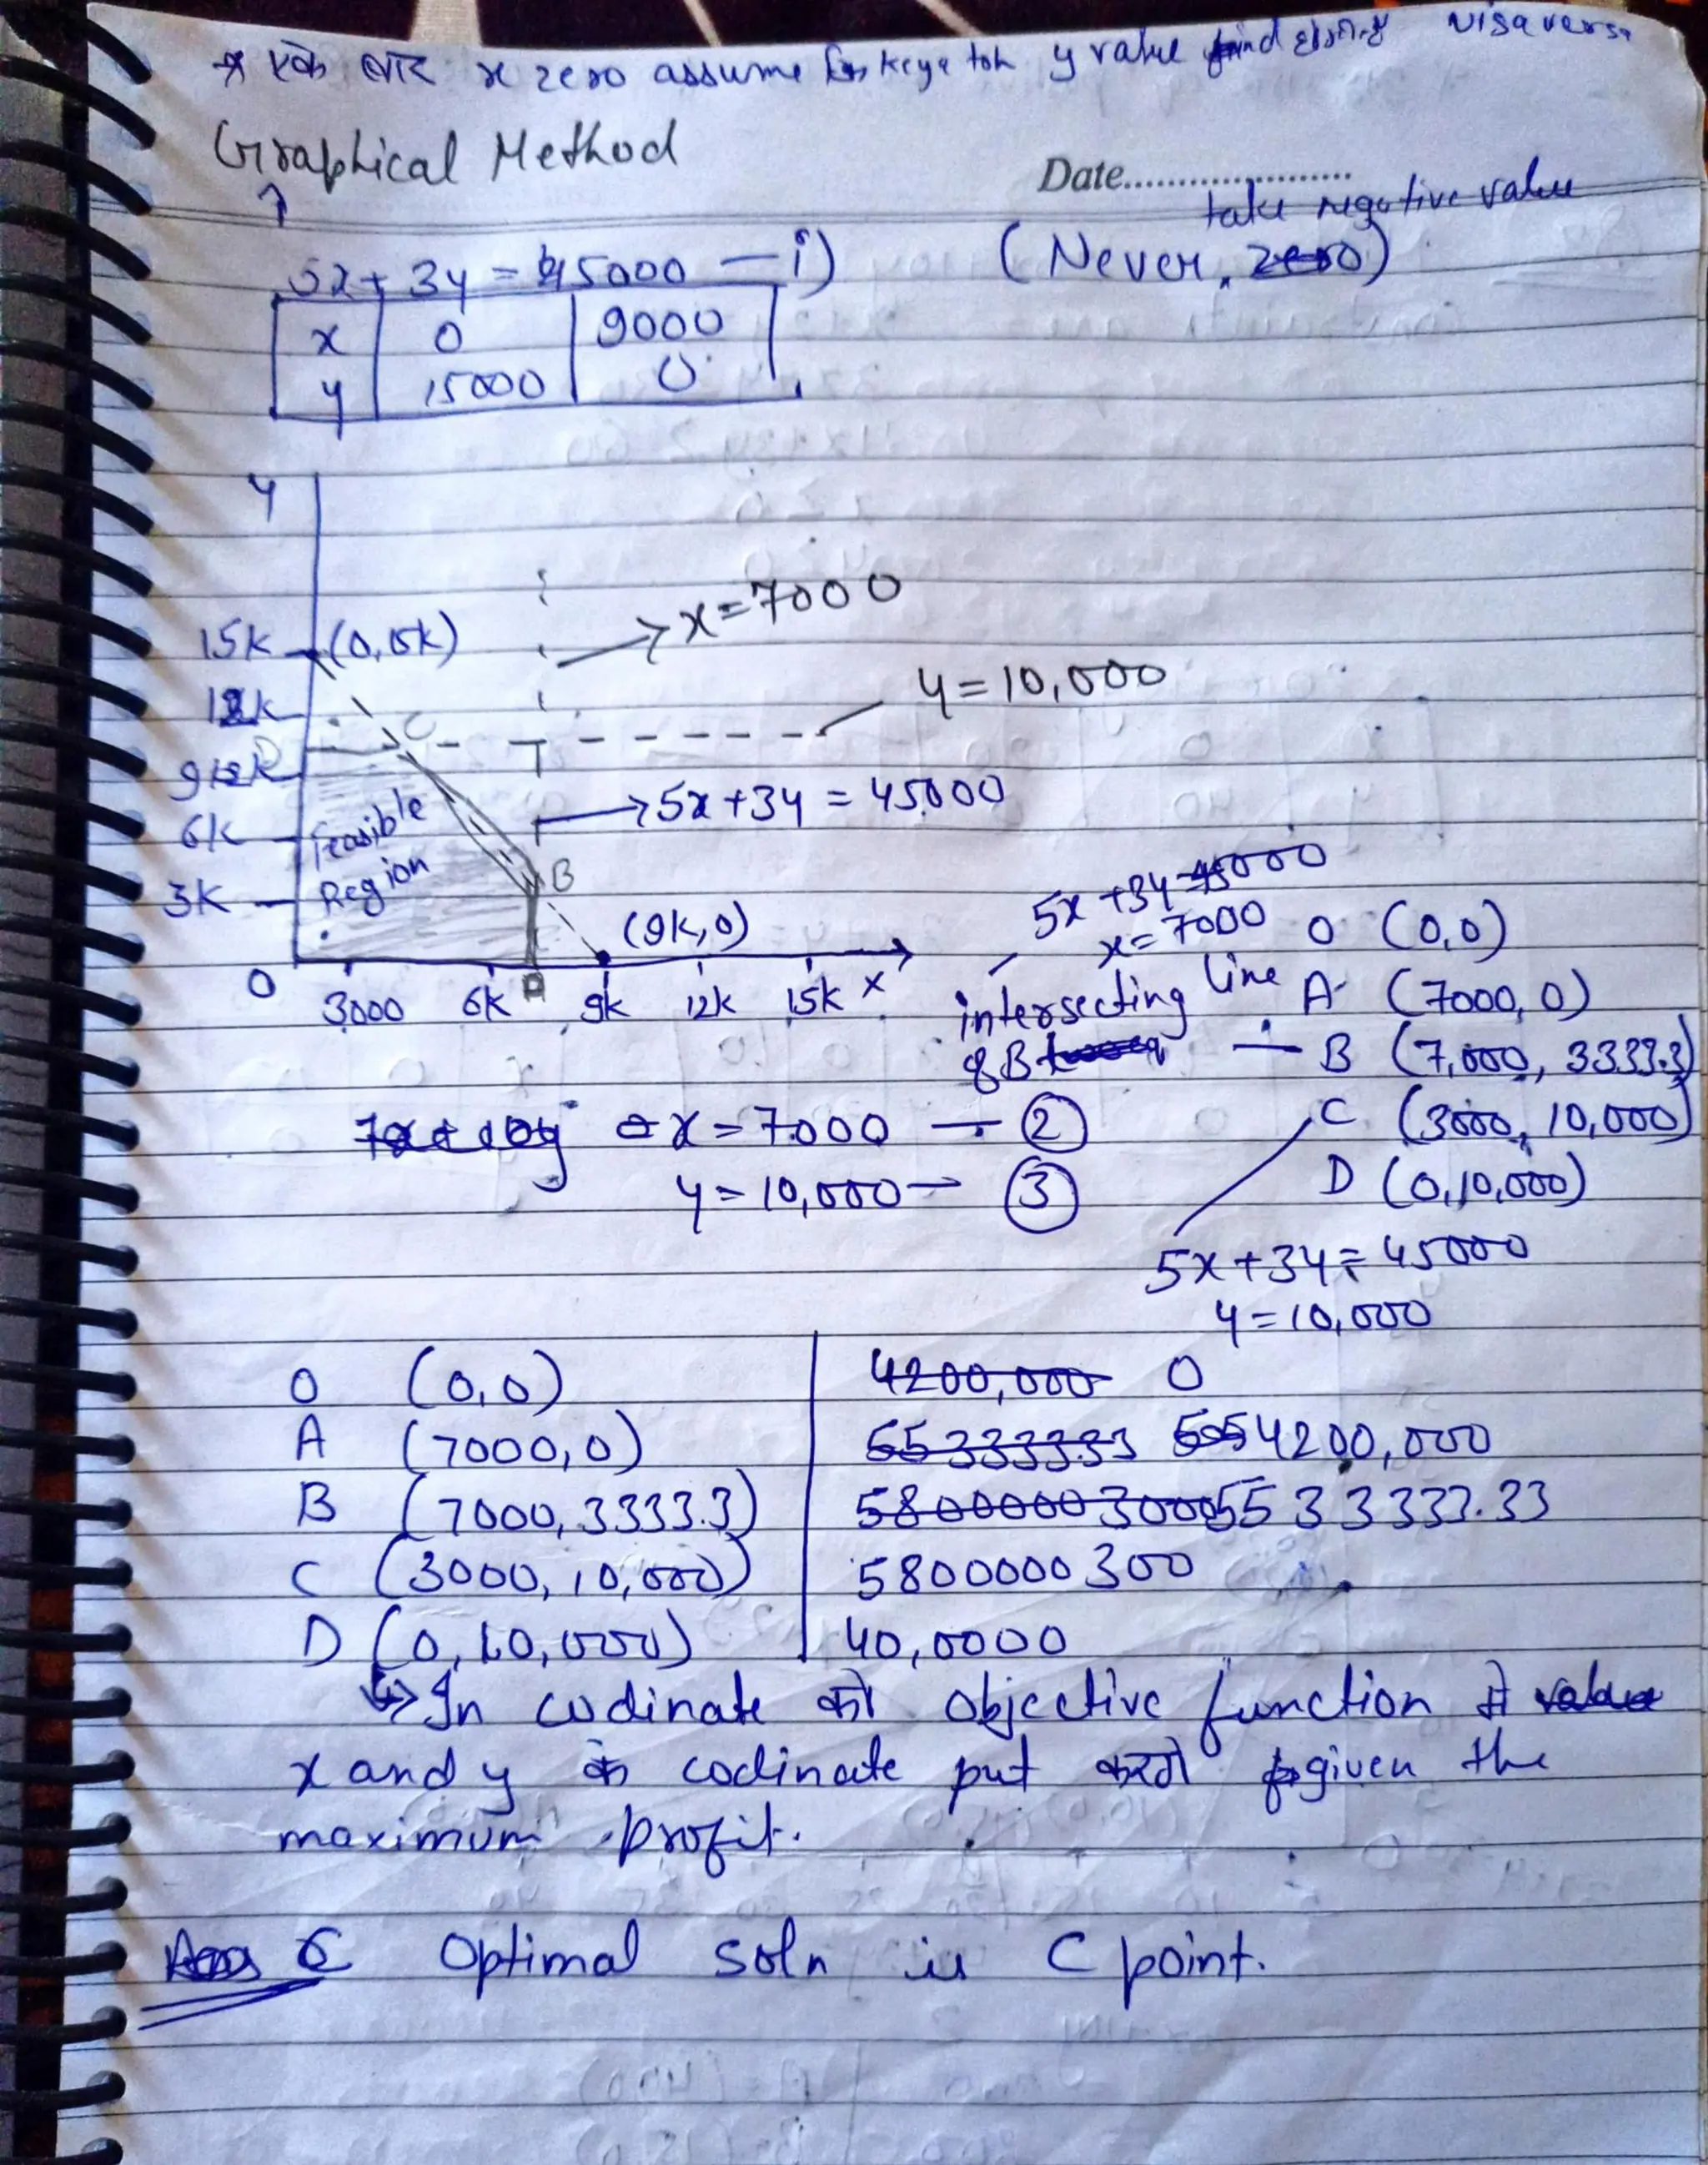 * एक बार x zero assume keya toh y value find visaversa
Graphical Method
Date....................
take negative value
5x + 3y = 45000 — i)
(Never, zero)
x 0 9000
y 15000 0
y
x = 7000
15k (0,15k)
y = 10,000
12k
C
D
9k
5x + 3y = 45000
6k
Feasible
Region
B
3k
5x + 3y = 45000
x = 7000
(9k, 0)
O (0,0)
0 3000 6k A 9k 12k 15k x
intersecting line
A (7000, 0)
of B — B (7,000, 3333.3)
x = 7000 — ②
C (3000, 10,000)
y = 10,000 — ③
D (0,10,000)
5x + 3y = 45000
y = 10,000
O (0,0) 4200,000 0
A (7000,0) 55333333 4200,000
B (7000, 3333.3) 5800000 3000 5533333.33
C (3000, 10,000) 5800000 300
D (0, 10,000) 40,0000
↳ In codinate को objective function में value
x and y के codinate put करते given the
maximum profit.
Ans C Optimal soln is C point.